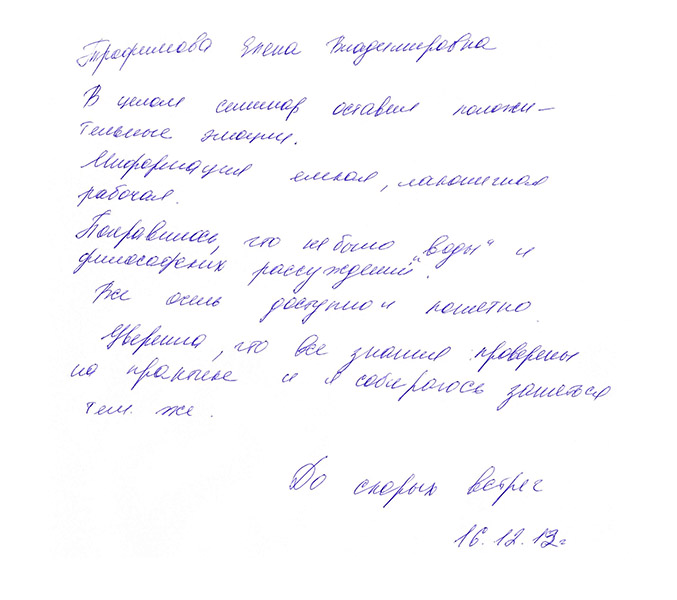 Трофимова Елена Владимировна
В целом семинар оставил положи-
тельные эмоции.
Информация емкая, лаконичная
рабочая.
Понравилось, что не было "воды" и
философских рассуждений".
Все очень доступно и понятно
Уверенна, что все знания проверены
на практике и я собираюсь заняться
тем же.
До скорых встреч
16.12.13г